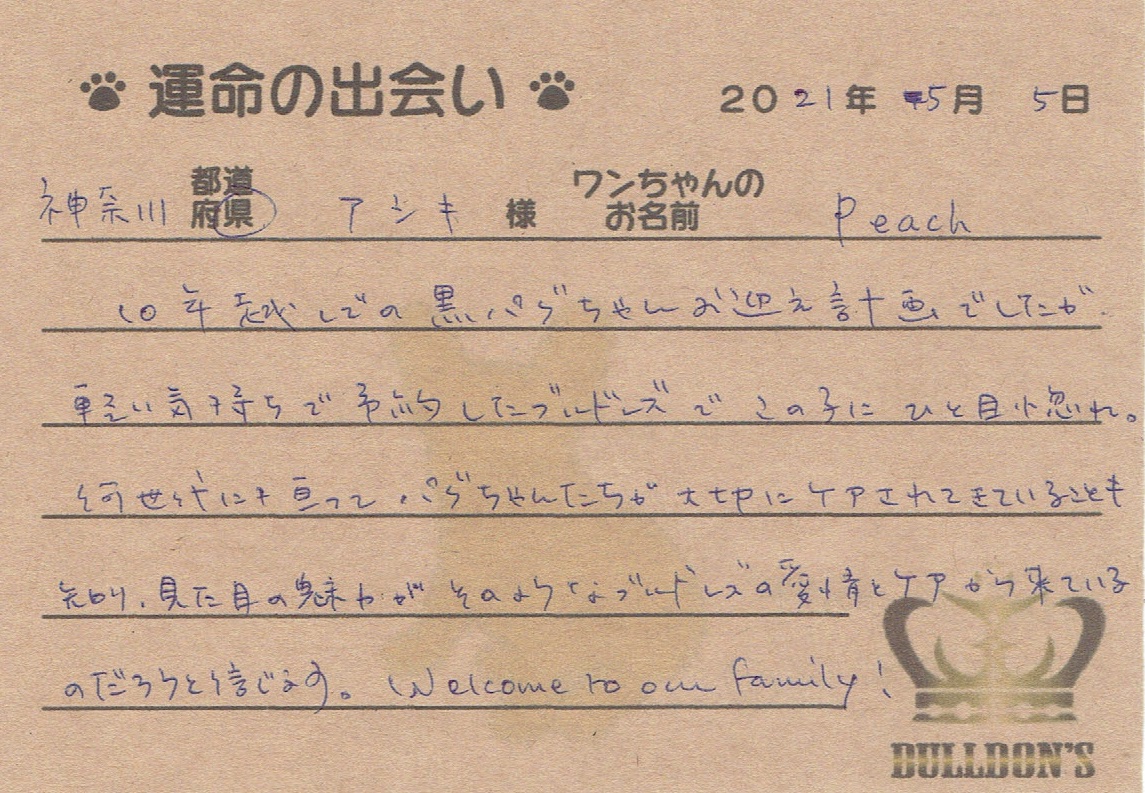 運命の出会い 2021年 5月 5日
神奈川 都道府県 アシキ 様 ワンちゃんのお名前 Peach
10年越しでの黒パグちゃんお迎え計画でしたが、
軽い気持ちで予約したブルドンズでこの子にひと目惚れ。
何世代にも亘ってパグちゃんたちが大切にケアされてきていることも
知り、見た目の魅力がそのようなブルドンズの愛情とケアから来ている
のだろうと信じます。Welcome to our family!
BULLDON'S